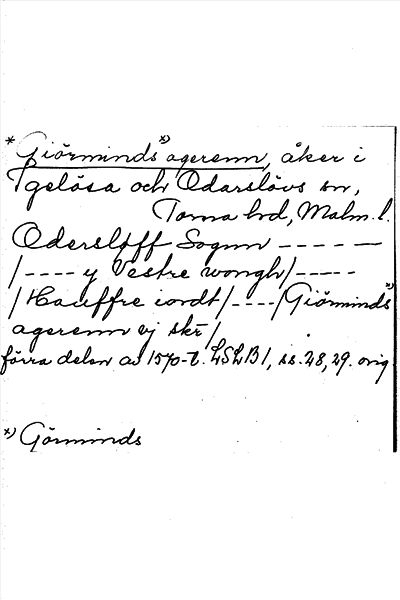 * Giörminds x) agerenn, åker i
Igelösa och Odarslövs sn,
Torna hd, Malm. l.
Odersløff Sognn - - - - - -
/- - - - y Vestre wongh/- - - - -
/Hauffre iordt/- - - -/Giörminds x)
agerenn vj skr/
förra delen av 1570-t. LSLB1, ss. 28, 29. orig.
x) Görminds